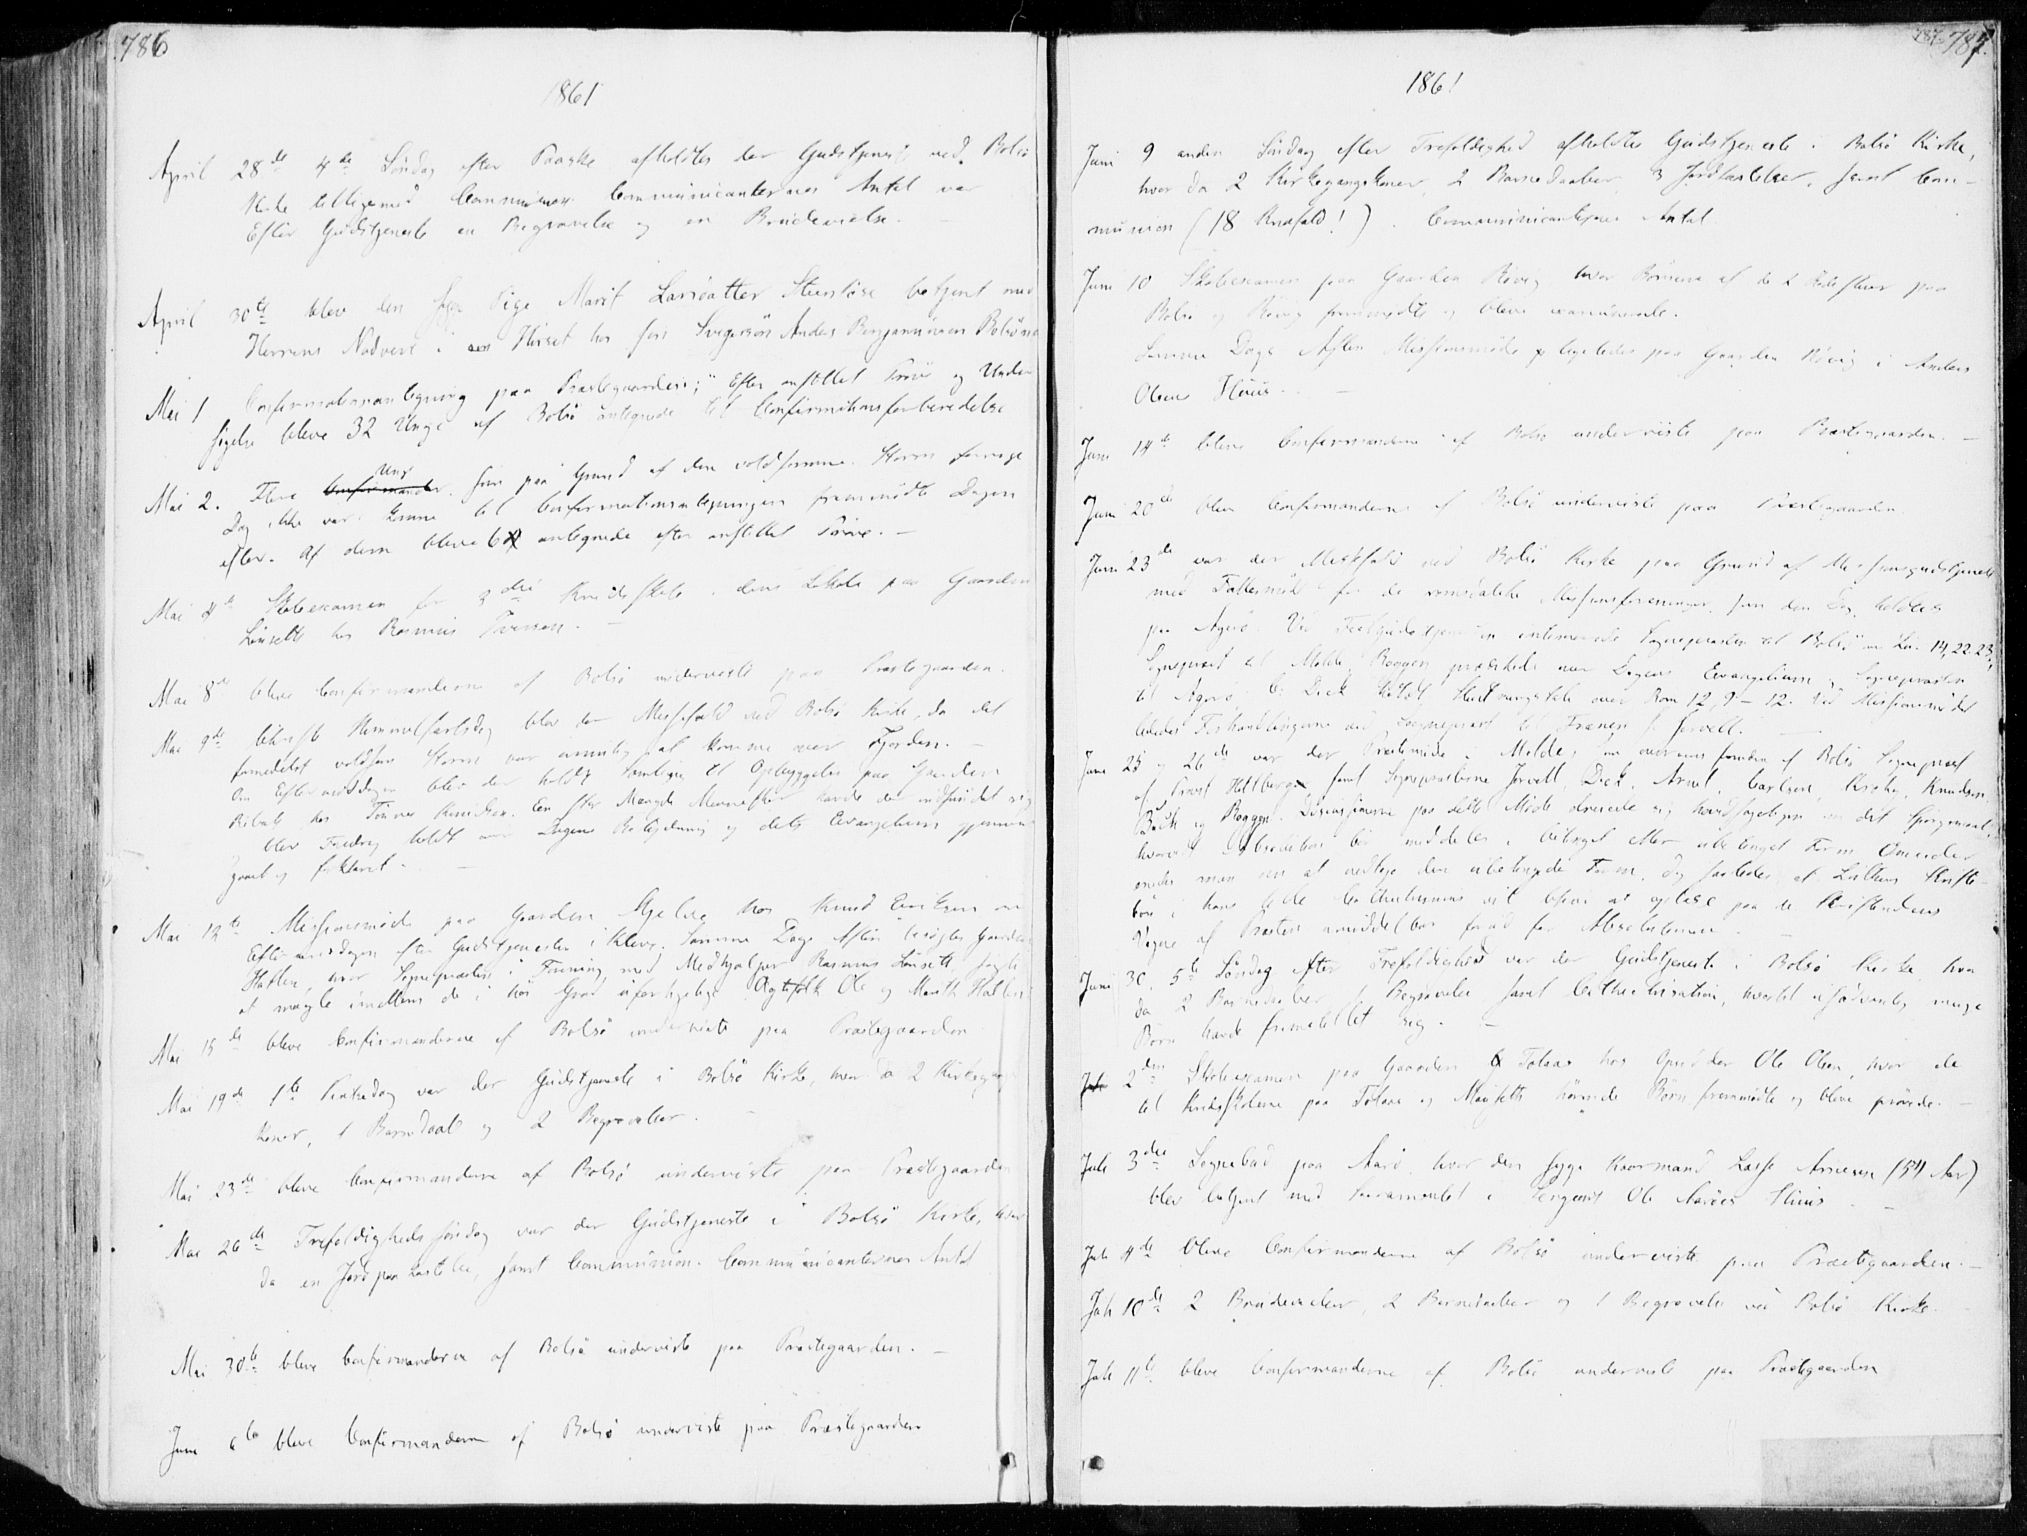 786
1861
April 28de 4de Søndag efter Paaske afholdtes der Gudstjeneste ved Bolsø
Kirke tilligemed Communion. Communicanternes Antal var
Efter Gudstjeneste en Begravelse og en Brudevielse. —
April 30te blev den syge Pige Marit Larsdatter betjent med
Herrens Nadvere i Huset hos Anders Benjaminsen Bolsønæs
Mai 1 Confirmationsantegning paa Præstegaarden; Efter anstillet Prøve og Under
søgelse bleve 32 Unge af Bolsø antegnede til Confirmationsforberedelse
Mai 2. Flere Unge som paa Grund af den voldsomme Storm forrige
Dag ikke var komne til Confirmationsantegningen fremmødte Dagen
efter. Af dem bleve 6 antegnede efter anstillet Prøve. —
Mai 4de Skoleexamen for 3die Kredsskole i dens Lokale paa Gaarden
Lønseth hos Rasmus Iversen. —
Mai 8de bleve Confirmanderne af Bolsø underviste paa Præstegaarden.
Mai 9de Christi Himmelfartsdag blev der Messefald ved Bolsø Kirke, da det
formedelst voldsom Storm var umulig at komme over Fjorden. —
Om Eftermiddagen blev der holdt Samling til Opbyggelse paa Gaarden
hos Knudsen. En stor Mængde Mennesker havde der indfundet sig
blev holdt over Dagens og dets Evangelium gjennem
gaaet og forklaret. —
Mai 12te Missionsmøde paa Gaarden hos Knud Eriksen om
Eftermiddagen efter Gudstjenesten i Kleve. Samme Dags Aften besøgtes Gaarden
Hatlen, hvor Sognepræsten i Forening med Medhjælper Rasmus Lønseth søgte
at mægle imellem de i høi Grad uforligelige Ægtefolk Ole og Marith Hatlen
Mai 15de bleve Confirmanderne af Bolsø underviste paa Præstegaarden
Mai 19de 1ste Pintsedag var der Gudstjeneste i Bolsø Kirke, hvor da 2 Kirkegangs
koner, 1 Barnedaab og 2 Begravelser. —
Mai 23de bleve Confirmanderne af Bolsø underviste paa Præstegaarden
Mai 26de Trefoldigheds Søndag var der Gudstjeneste i Bolsø Kirke, hvor
da en Jordpaakastelse, samt Communion. Communicanternes Antal
Mai 30te bleve Confirmanderne af Bolsø underviste paa Præstegaarden. —
Juni 6te bleve Confirmanderne af Bolsø underviste paa Præstegaarden
787.
1861
Juni 9 anden Søndag efter Trefoldighed afholdtes Gudstjeneste i Bolsø Kirke,
hvor da 2 Kirkegangskoner, 2 Barnedaaber, 3 Jordkastelser, samt Com-
munion (18 Knæfald!). Communicanternes Antal
Juni 10 Skoleexamen paa Gaarden Røvig hvor Børnene af de 2 paa
Bolsø og Røvig fremmødte og bleve examinerede.
Samme Dags Aften Missionsmøde ligeledes paa Gaarden Røvig i Anders
Olsens Huus. —
Juni 14de bleve Confirmanderne af Bolsø underviste paa Præstegaarden. —
Juni 20de bleve Confirmanderne af Bolsø underviste paa Præstegaarden
Juni 23de var der Messefald ved Bolsø Kirke paa Grund af Missionsgudstjeneste
med Fællesmøde for de romsdalske Missionsforeninger, som den Dag holdtes
paa Agerø. Ved Festgudstjenesten intimerede Sognepræsten til Bolsø over Luc. 14, 22-23,
Sognepræst til Molde Roggen prædikede over Dagens Evangelium og Sognepræsten
til Agerø, C. Dick holdt Slutningstale over Rom 12, 9–12. Ved Missionsmødet
lededes Forhandlingerne ved Sognepræst til Frænen J. Jervell. —
Juni 25 og 26de var der Præstemøde i Molde,
af Provst samt Sognepræsterne Jervell, Dick, Arnet, Carlsen, Krohg, Knudsen,
og Roggen. Discussionerne paa dette Møde dreiede sig hovedsageligen om det Spørgsmaal,
hvorvidt bør meddeles i betinget eller ubetinget Form.
man om at vedtage den ubetingede Form, og saaledes at Luthers Skrifte-
bøn i hans lille Catechismus vil blive at oplæse paa de Skriftendes
Vegne af Præsten umiddelbar forud for Absolutionen. —
Juni 30. 5te Søndag efter Trefoldighed var der Gudstjeneste i Bolsø Kirke hvor
da 2 Barnedaaber, 1 Begravelse samt Catechisation, hvortil usædvanlig mange
Børn havde fremstillet sig. —
Juli 2den Skoleexamen paa Gaarden Tolaas hos Ole Olsen, hvor de
til Kredsskolerne paa Tolaas og hørende Børn fremmødte og bleve prøvede. —
Juli 3die Sognebud paa Aarø, hvor den syge Lasse Arnesen (54 Aar)
blev betjent med Sacramentet i Sergeant Ole Aarøes Huus. —
Juli 4de bleve Confirmanderne af Bolsø underviste paa Præstegaarden. —
Juli 10de 2 Brudevielser, 2 Barnedaaber og 1 Begravelse ved Bolsø Kirke.
Juli 11te bleve Confirmanderne af Bolsø underviste paa Præstegaarden